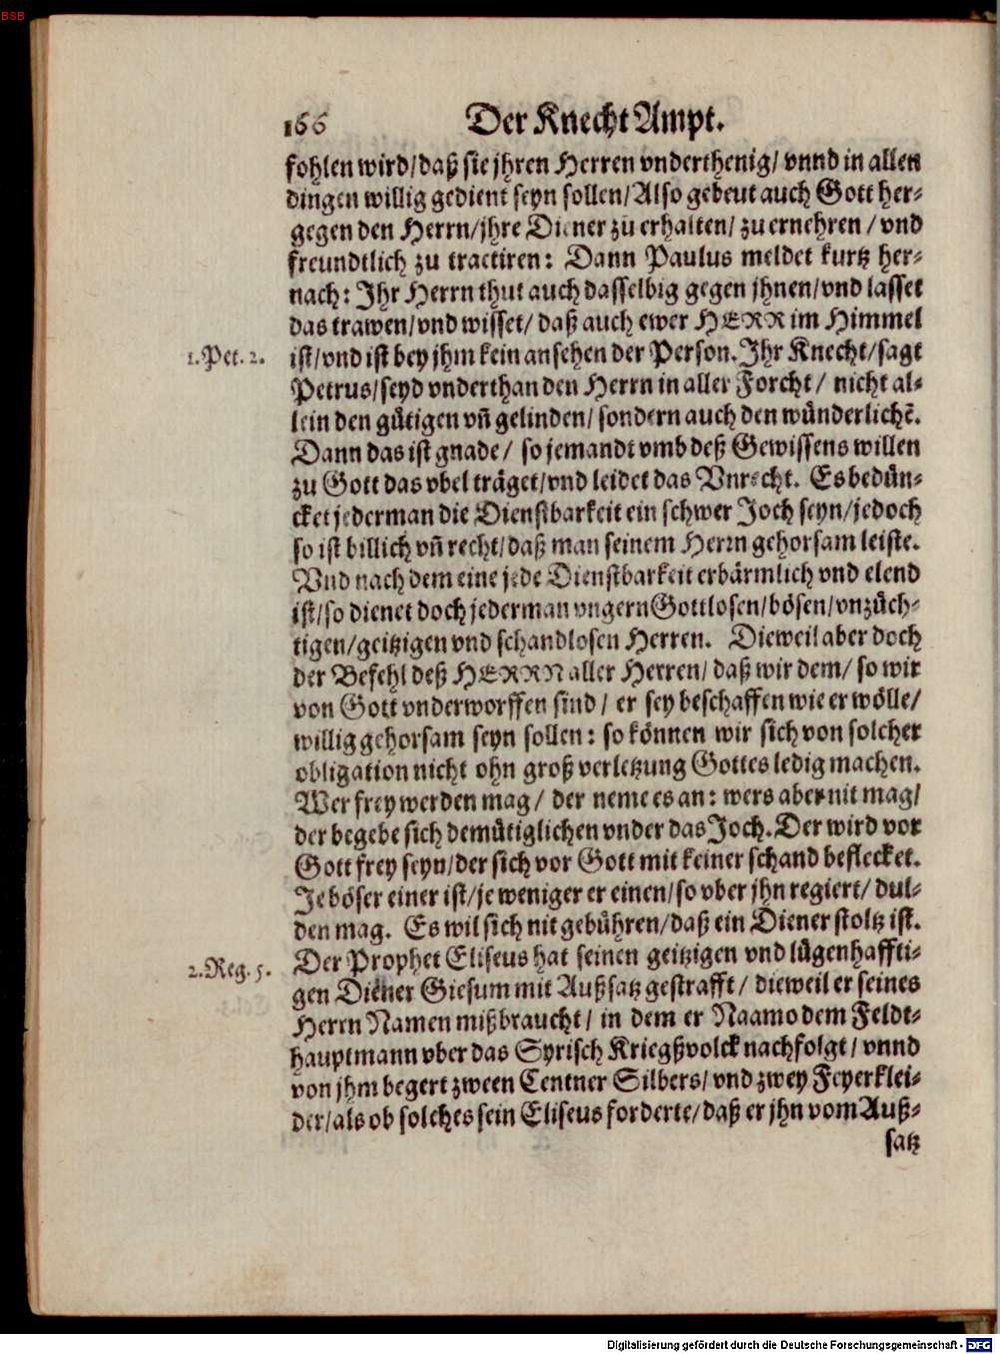 BSB
166 Der Knecht Ampt.
fohlen wird/daß sie jhren Herren vnderthenig/ vnnd in allen
dingen willig gedient seyn sollen/Also gebeut auch Gott her-
gegen den Herrn/jhre Diener zu erhalten/ zu ernehren / vnd
freundtlich zu tractiren: Dann Paulus meldet kurtz her-
nach: Ihr Herrn thut auch dasselbig gegen jhnen/vnd lasset
das trawen/vnd wisset/ daß auch ewer HERR im Himmel
1.Pet. 2. ist/vnd ist bey jhm kein ansehen der Person. Ihr Knecht/sagt
Petrus/seyd vnderthan den Herrn in aller Forcht / nicht al-
lein den gütigen vñ gelinden/ sondern auch den wünderlichẽ.
Dann das ist gnade / so jemandt vmb deß Gewissens willen
zu Gott das vbel träget/vnd leidet das Vnrecht. Es bedün-
cket jederman die Dienstbarkeit ein schwer Joch seyn/jedoch
so ist billich vñ recht/daß man seinem Herrn gehorsam leiste.
Vnd nach dem eine jede Dienstbarkeit erbärmlich vnd elend
ist/so dienet doch jederman vngern Gottlosen/bösen/vnzüch-
tigen/geitzigen vnd schandlosen Herren. Dieweil aber doch
der Befehl deß HERRN aller Herren/ daß wir dem/ so wir
von Gott vnderworffen sind / er sey beschaffen wie er wölle/
willig gehorsam seyn sollen: so können wir sich von solcher
obligation nicht ohn groß verletzung Gottes ledig machen.
Wer frey werden mag / der neme es an: wers aber nit mag/
der begebe sich demütiglichen vnder das Joch. Der wird vor
Gott frey seyn/der sich vor Gott mit keiner schand beflecket.
Je böser einer ist/je weniger er einen/so vber jhn regiert/ dul-
den mag. Es wil sich nit gebühren/daß ein Diener stoltz ist.
2.Reg. 5. Der Prophet Eliseus hat seinen geitzigen vnd lügenhaffti-
gen Diener Giesum mit Außsatz gestrafft / dieweil er seines
Herrn Namen mißbraucht/ in dem er Naamo dem Feldt-
hauptmann vber das Syrisch Kriegßvolck nachfolgt / vnnd
von jhm begert zween Centner Silbers/ vnd zwey Feyerklei-
der/als ob solches sein Eliseus forderte/daß er jhn vom Auß-
satz
Digitalisierung gefördert durch die Deutsche Forschungsgemeinschaft - DFG